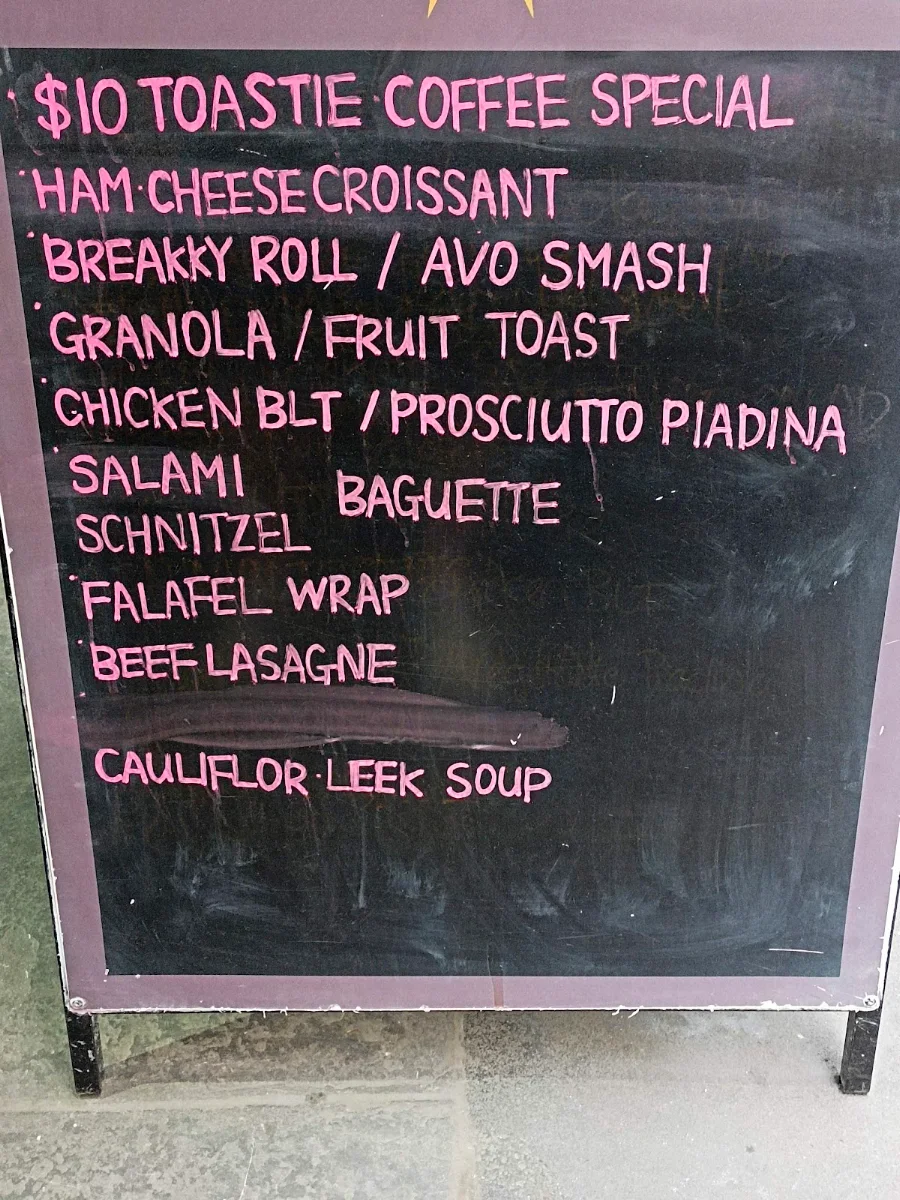 $10 TOASTIE·COFFEE SPECIAL
HAM·CHEESE CROISSANT
BREAKKY ROLL / AVO SMASH
GRANOLA / FRUIT TOAST
CHICKEN BLT / PROSCIUTTO PIADINA
SALAMI
BAGUETTE
SCHNITZEL
FALAFEL WRAP
BEEF LASAGNE
CAULIFLOR·LEEK SOUP